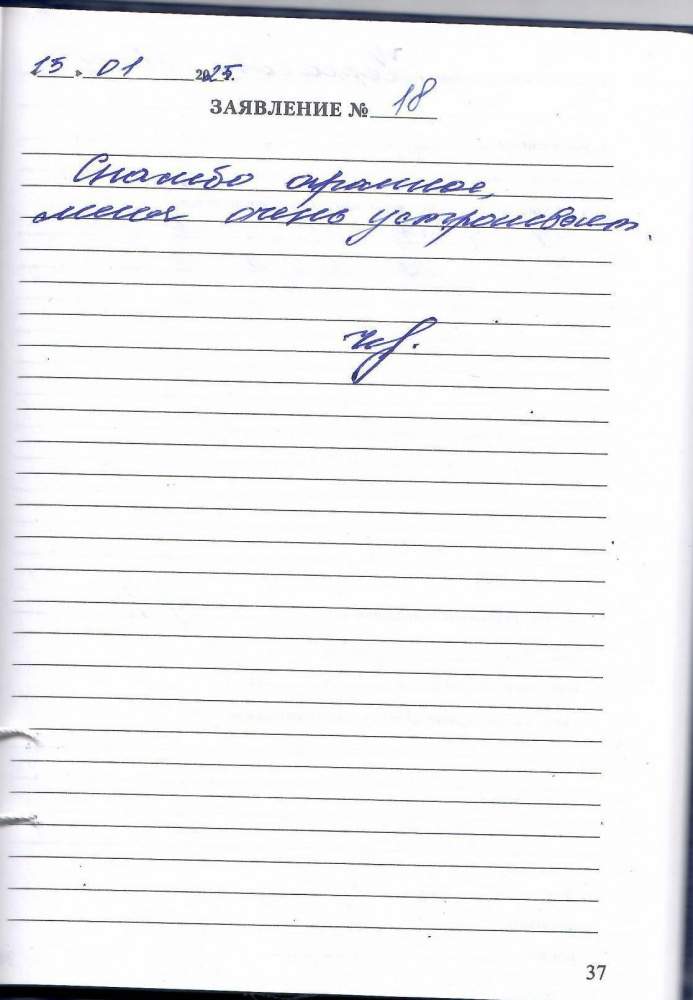 15 " 01 2025г.
ЗАЯВЛЕНИЕ № 18
Спасибо огромное,
меня очень устроивает.
37